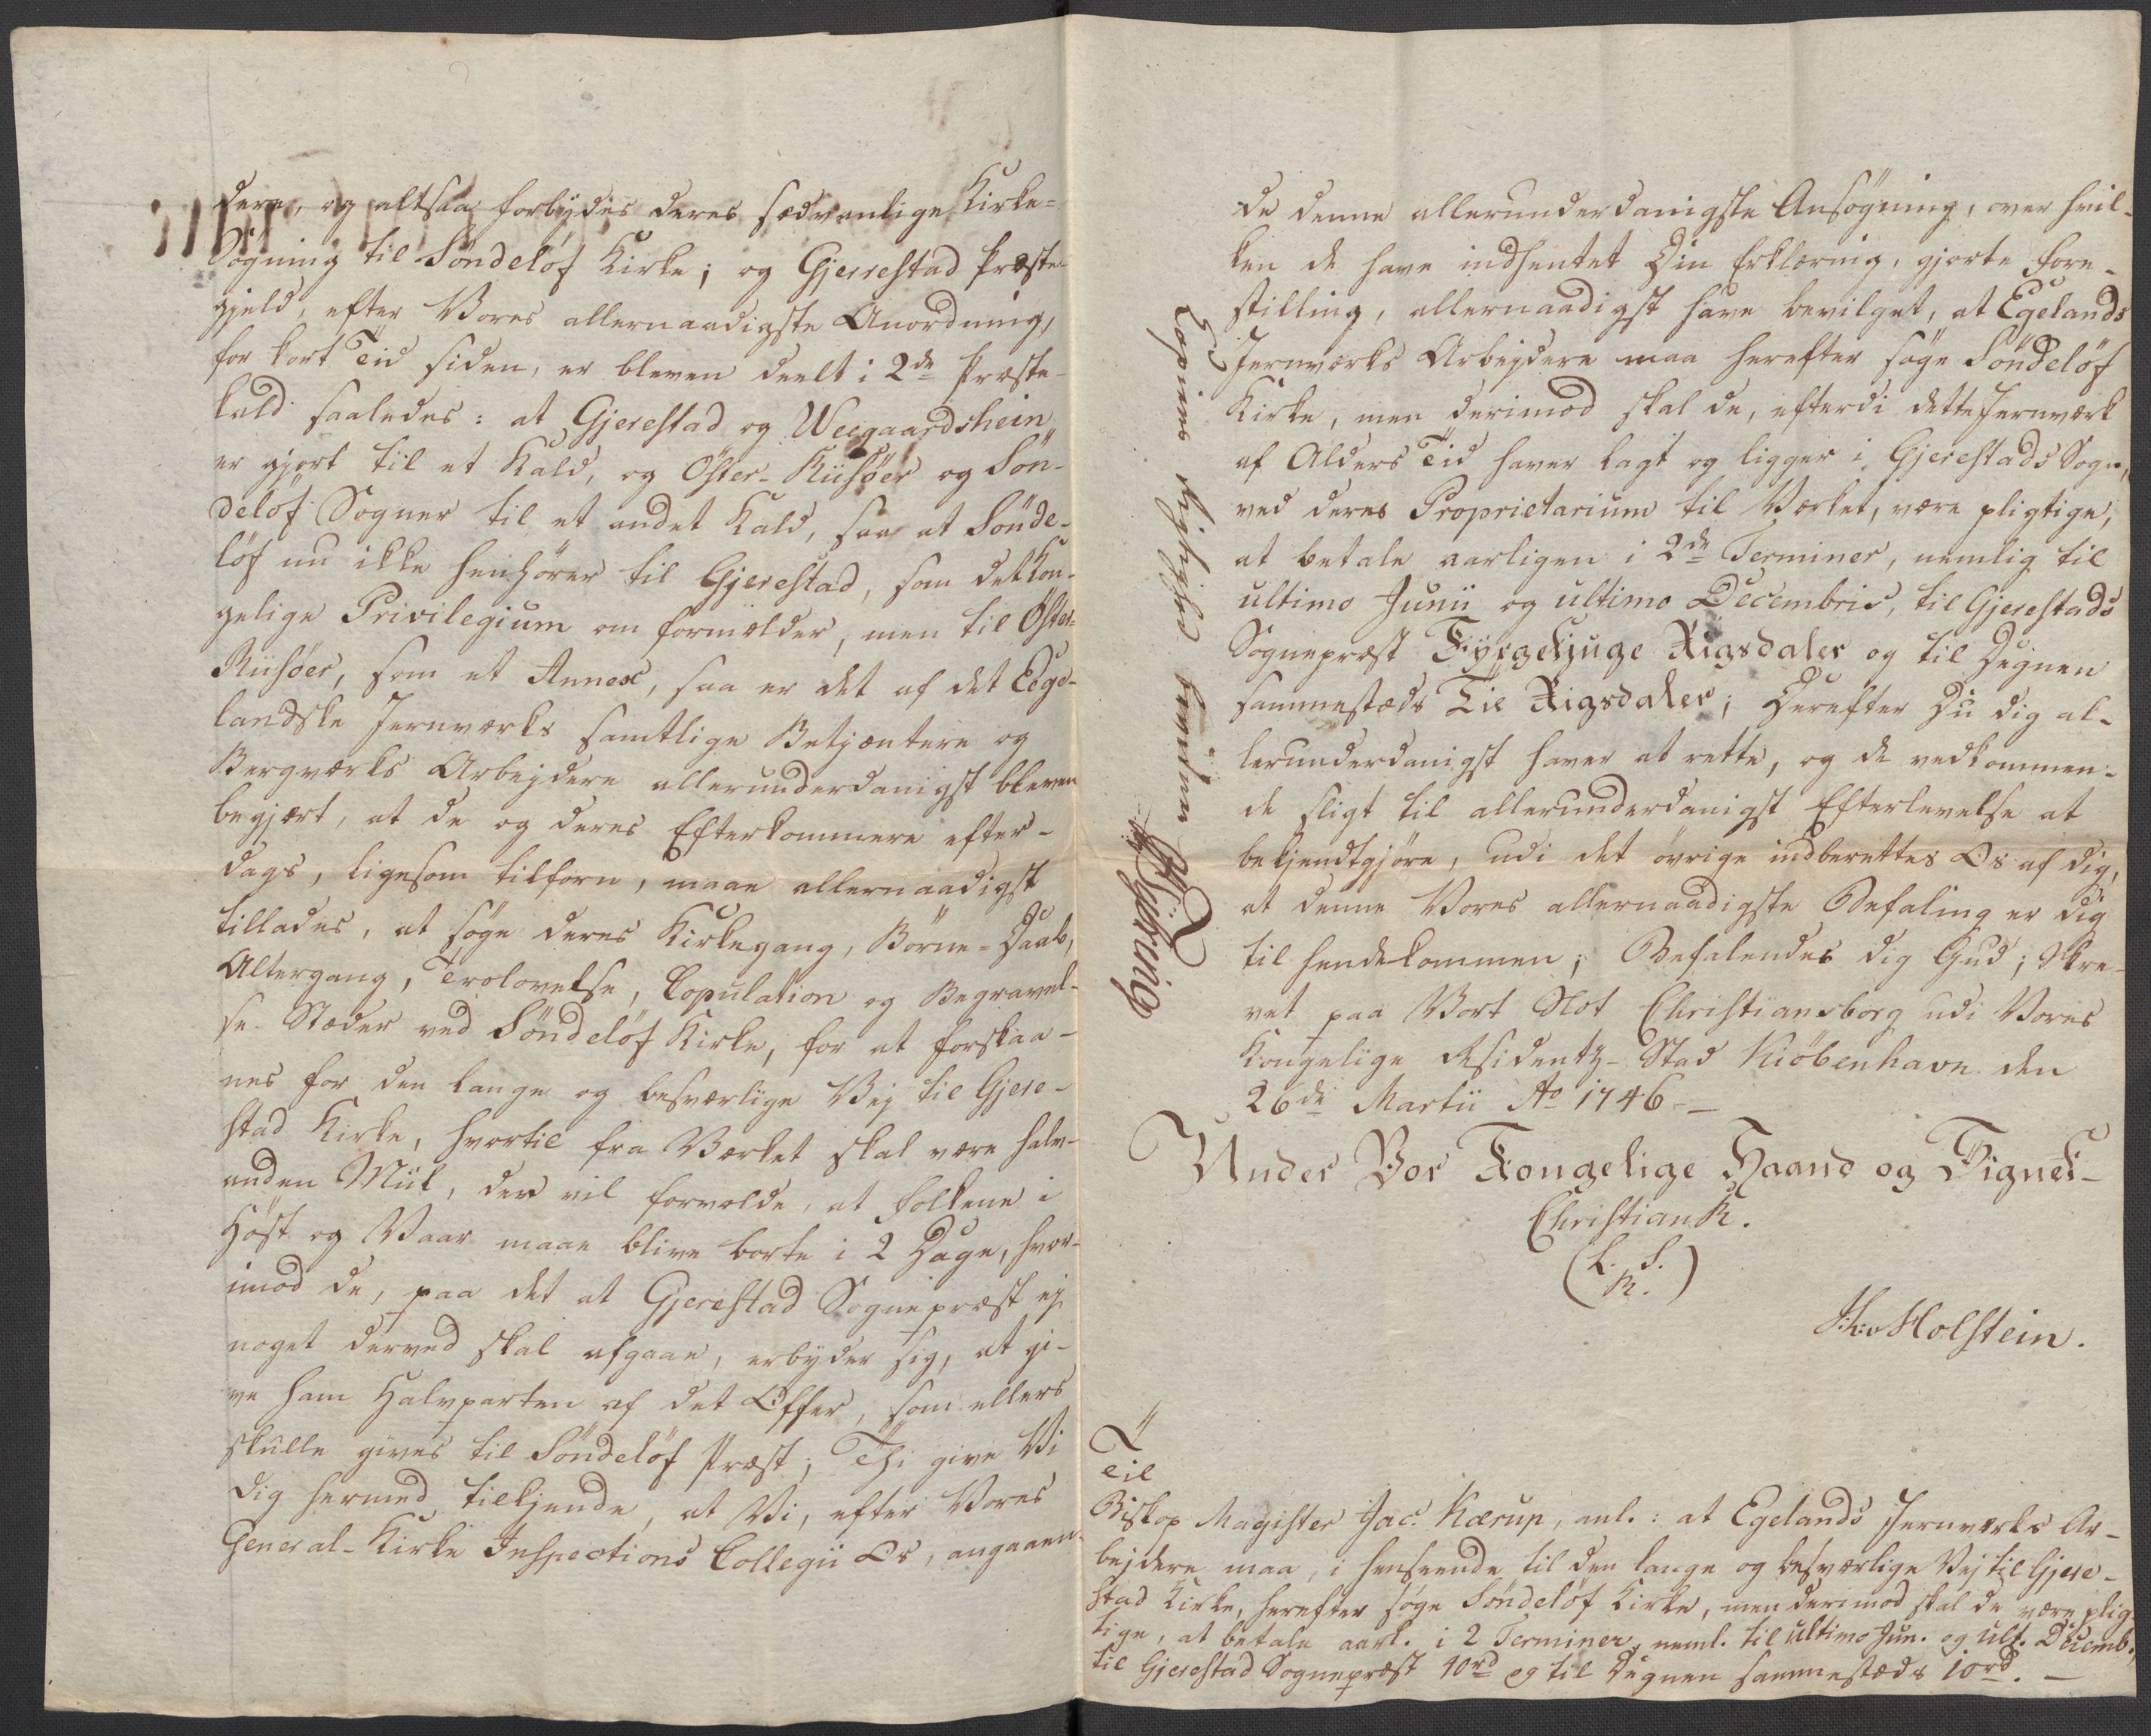 dere, og altsaa forbydes deres sædvanlige Kirke-
Søgning til Söndelöf Kirke; og Gjerrestad Præste-
gjeld, efter Vores allernaadigste Anordning,
for kort Tid siden, er bleven deelt i 2de Præste-
kald saaledes: at Gjerestad og Weegaardshein
er gjort til et Kald, og Öster-Riisöer og Sön-
delöf Sogner til et andet Kald, saa at Sönde-
löf nu ikke henhörer til Gjerestad, som det Kon-
gelige Privilegium om formelder, men til Öster-
Riisöer, som et Annex, saa er det af det Eege-
landske Jernværks samtlige Betjentere og
Bergværks Arbejdere allerunderdanigst bleven
begjært, at de og deres Efterkommere efter-
dags, ligesom tilforn, maae allernaadigst
tillades, at søge deres Kirkegang, Börne-Daab,
Altergang, Trolovelse, Copulation og Begravel-
se-Stæder ved Söndelöf Kirke, for at forskaa-
nes for den lange og besværlige Vej til Gjere-
stad Kirke, hvortil fra Værket skal være halv-
anden Miil, der vil forvolde, at Folkene i
Höst og Vaar maae blive borte i 2 Dage, hvor-
imod de, paa det at Gjerestad Sognepræst ej
noget derved skal afgaae, erbyder sig, at gi-
ve ham Halvparten af det Offer, som ellers
skulle gives til Söndelöf Præst; Thi give Vi
dig hermed tilkjende, at Vi, efter Vores
General-Kirke Inspections Collegii Os, angaaen-
de denne allerunderdanigste Ansøgning, over hvil-
ken de have indhentet Din Erklæring, gjorte Fore-
stilling, allernaadigst have bevilget, at Egelands
Jernværks Arbejdere maa herefter søge Söndelöf
Kirke, men derimod skal de, efterdi dette Jernværk
af Alders Tid haver lagt og ligger i Gjerestads Sogn,
ved deres Proprietarium til Værket, være pligtige,
at betale aarligen i 2de Terminer, nemlig til
ultimo Junii og ultimo Decembris, til Gjerestads
Sognepræst Fyrgetyuge Rigsdaler og til Degnen
sammestæds Tie Rigsdaler; Derefter Du dig al-
lerunderdanigst haver at rette, og de vedkommen-
de sligt til allerunderdanigst Efterlevelse at
bekjendtgjöre, udi det övrige indberettes Os af dig,
at denne Vores allernaadigste Befaling er dig
til hende kommen; Befalendes dig Gud; Skre-
vet paa Vort Slot Christiansborg udi Vores
Kongelige Residentz-Stad Kiöbenhavn den
26de Martii Ao 1746.
Under Vor Kongelige Haand og Signet
Christian R.
(L. S.
R.)
J. L. v. Holstein.
Copiens Rigtighed bevidner
Til
Biskop Magister Jac. Kærup, anl.: at Egelands Jernværks Ar-
bejdere maa, i henseende til den lange og besværlige Vej til Gjere-
stad Kirke, herefter søge Söndelöf Kirke, men derimod skal de være plig-
tige, at betale aarl. i 2 Terminer, neml. til ultimo Jun. og ult. Decemb.,
til Gjerestad Sognepræst 40rd og til Degnen sammestæds 10rd.